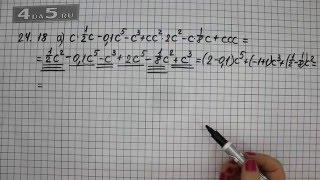 4DA5.RU
24.18 а) c·½c-0,1c⁵-c³+cc²·2c²-c·⅛c+ccc=
=½c²-0,1c⁵-c³+2c⁵-⅛c²+c³=(2-0,1)c⁵+(-1+1)c³+(½-⅛)c²=
=